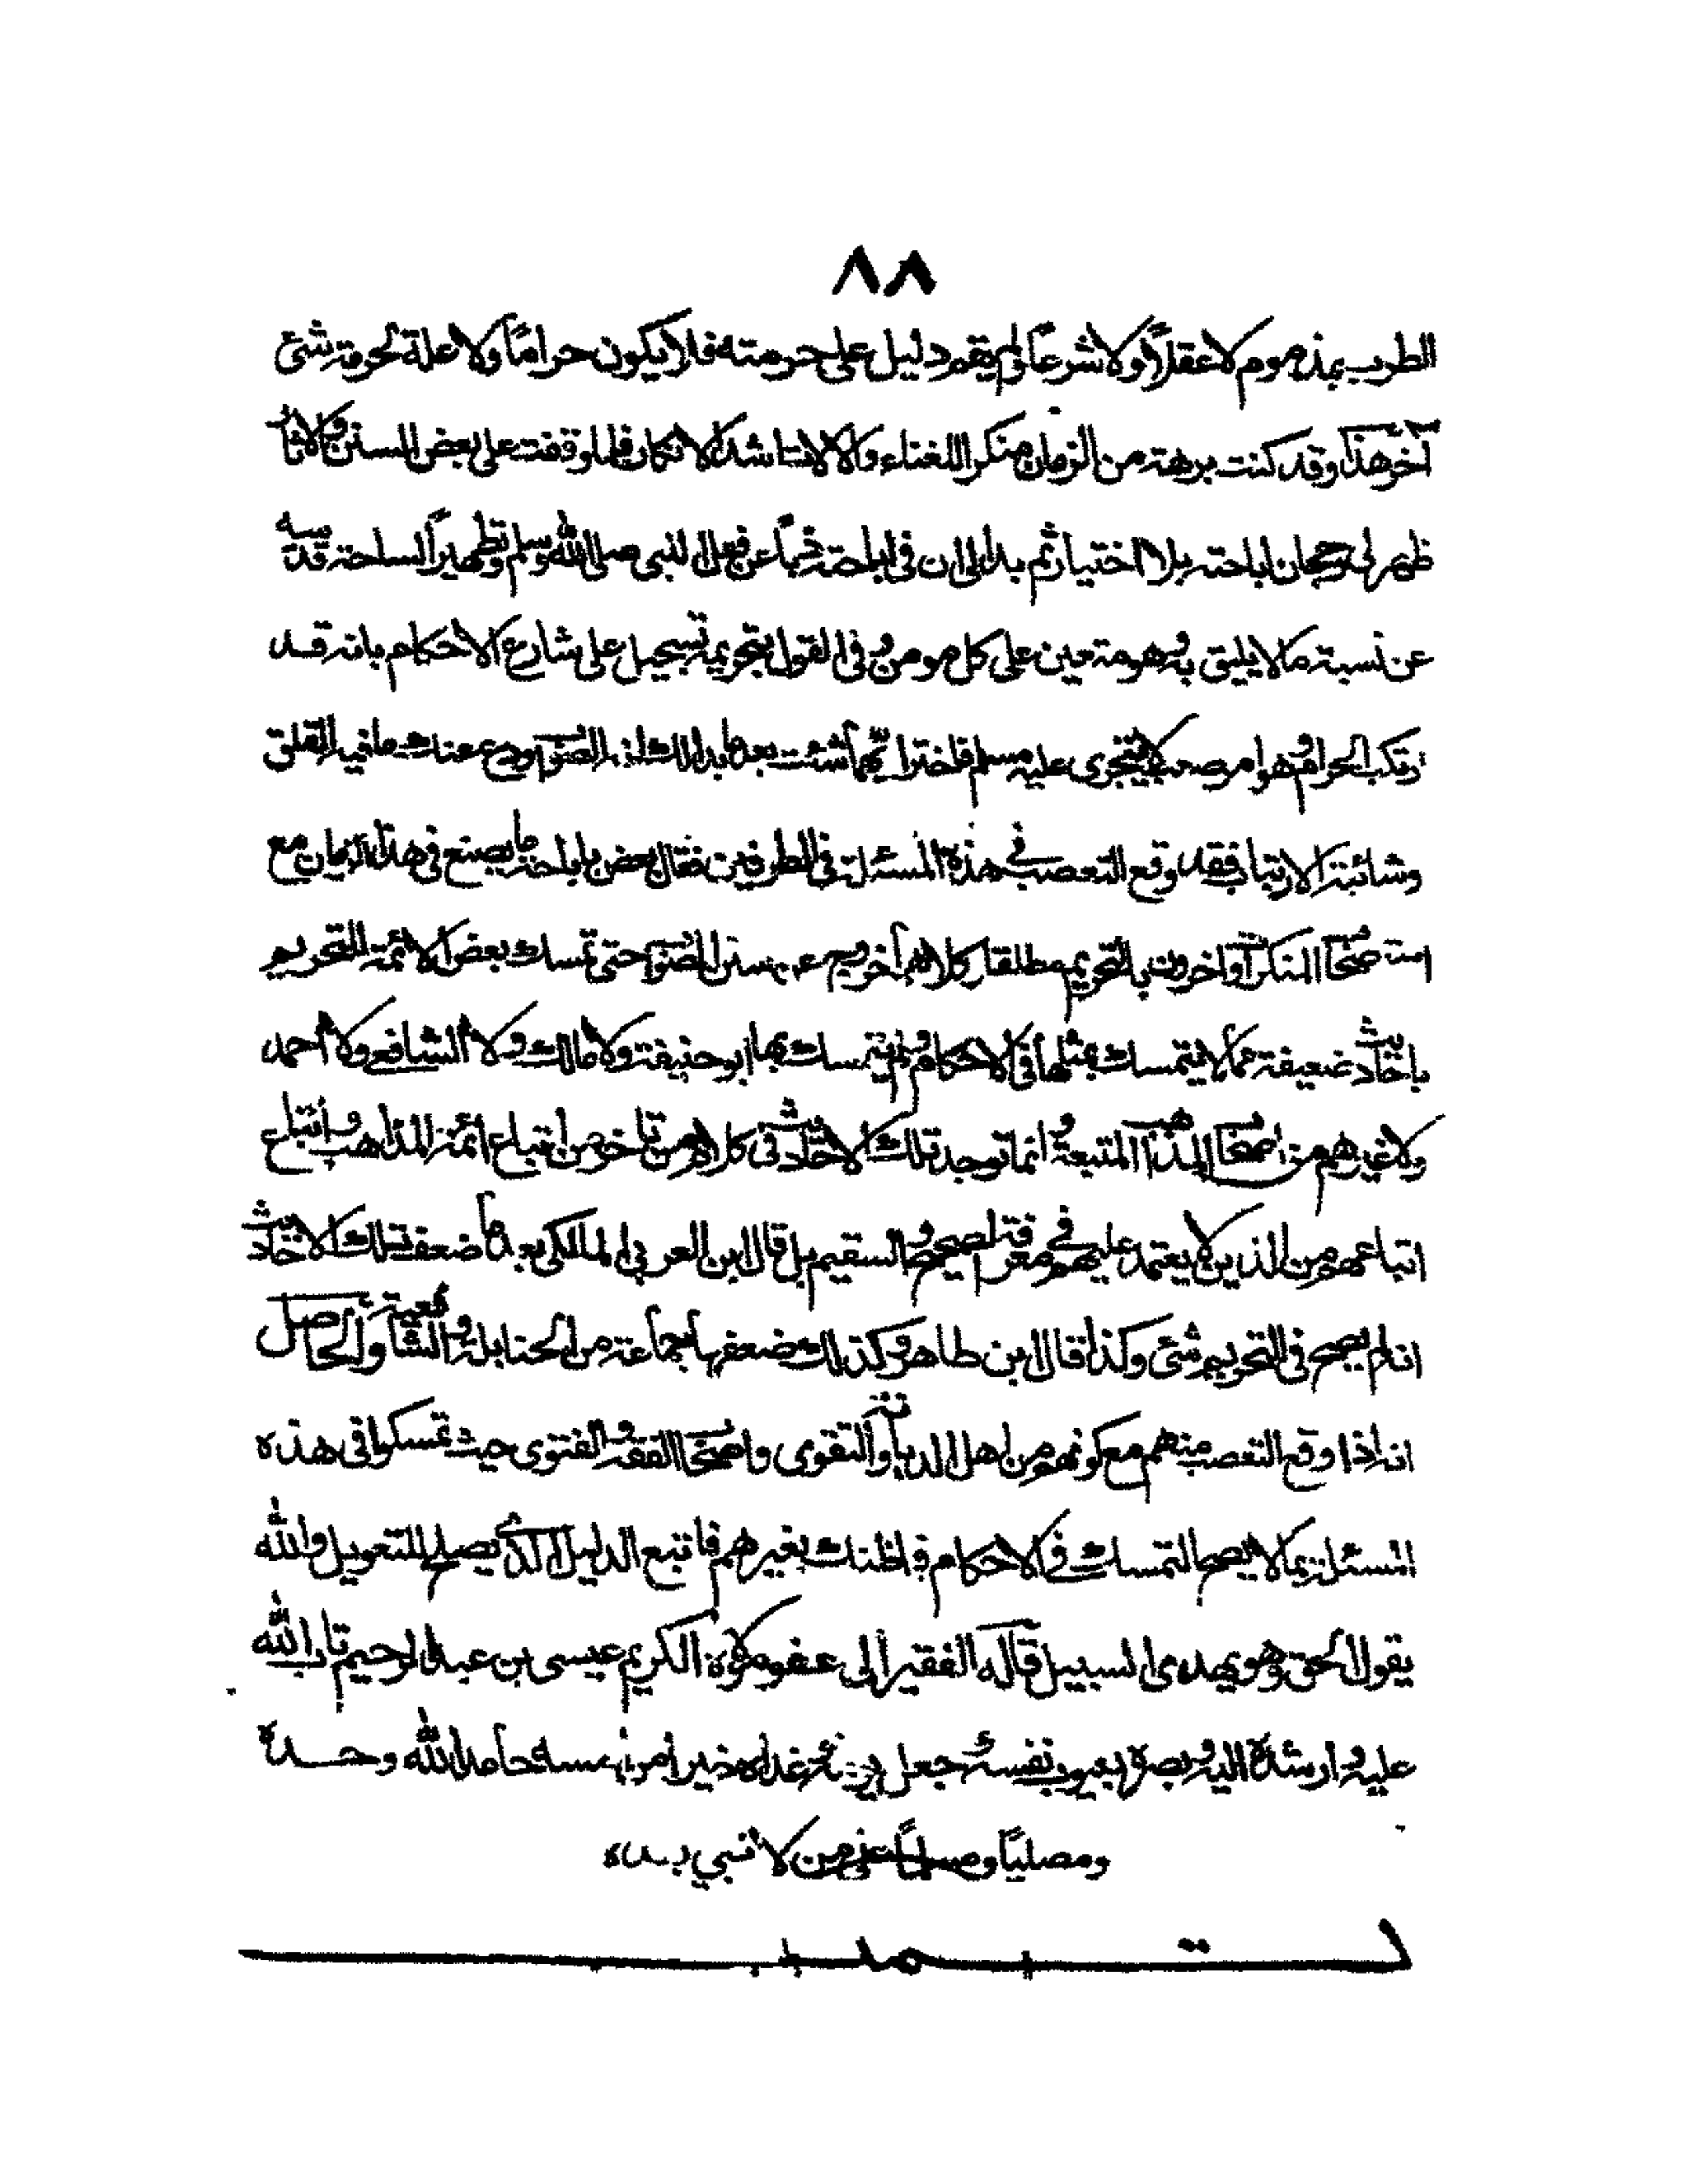 ٨٨
الطرب بمذموم لا عقلاً ولا شرعاً ولم يقم دليل على حرمته فلا يكون حراماً ولا علة لحرمة شئ
آخر هذا وقد كنت برهة من الزمان منكر اللغناء والالات اشد الانكار فلما وقفت على بعض السنن والاثار
ظهر لي رجحان اباحته بلا اختيار ثم بدا لي ان في اباحته ذباً عن فعل النبي صلى الله وسلم وتطهيراً لساحة قدسه
عن نسبة ما لا يليق به وهو متعين على كل مومن وفي القول بتحريمه تسجيل على شارع الاحكام بانه قد
ارتكب الحرام وهو امر صعب لا يتجرى عليه مسلم فاختر ايهما شئت بعد ما بدا لك الصواب ودع عنك ما فيه القلق
وشائبة الارتياب فقد وقع التعصب في هذه المسئلة في الطرفين فقال بعض باباحة ما يصنع في هذا الزمان مع
المنكرات وآخرون بالتحريم مطلقا وكلاهما خروج عن سنن الصواب حتى تمسك بعض الائمة التحريم
باحاديث ضعيفة مما لا يتمسك بمثلها في الاحكام ولم يتمسك بها ابو حنيفة ولا مالك ولا الشافعي ولا أحمد
ولا غيرهم من اصحاب المذاهب المتبعة وانما توجد تلك الاحاديث في كلام من تاخر من اتباع ائمة المذاهب واتباع
اتباعهم من الذين لا يعتمد عليهم في معرفة الصحيح والسقيم بل قال ابن العربي المالكي بعد ما ضعف تلك الاحاديث
انه لم يصح في التحريم شئ وكذا قال ابن طاهر وكذلك ضعفها جماعة من الحنابلة والشافعية والحاصل
انه اذا وقع التعصب منهم مع كونهم من اهل الديانة والتقوى واصحاب الفقه والفتوى حيث تمسكوا في هذه
المسئلة بما لا يصح التمسك في الاحكام فما ظنك بغيرهم فاتبع الدليل الذي يصلح للتعويل والله
يقول الحق وهو يهدى السبيل قاله الفقير الى عفو مولاه الكريم عيسى بن عبد الرحيم تاب الله
عليه وارشده اليه وبصره بعيوب نفسه وجعل غداه خيرا من امسه حامدا لله وحده
ومصلياً ومسلماً على من لا نبي بعده
تمت